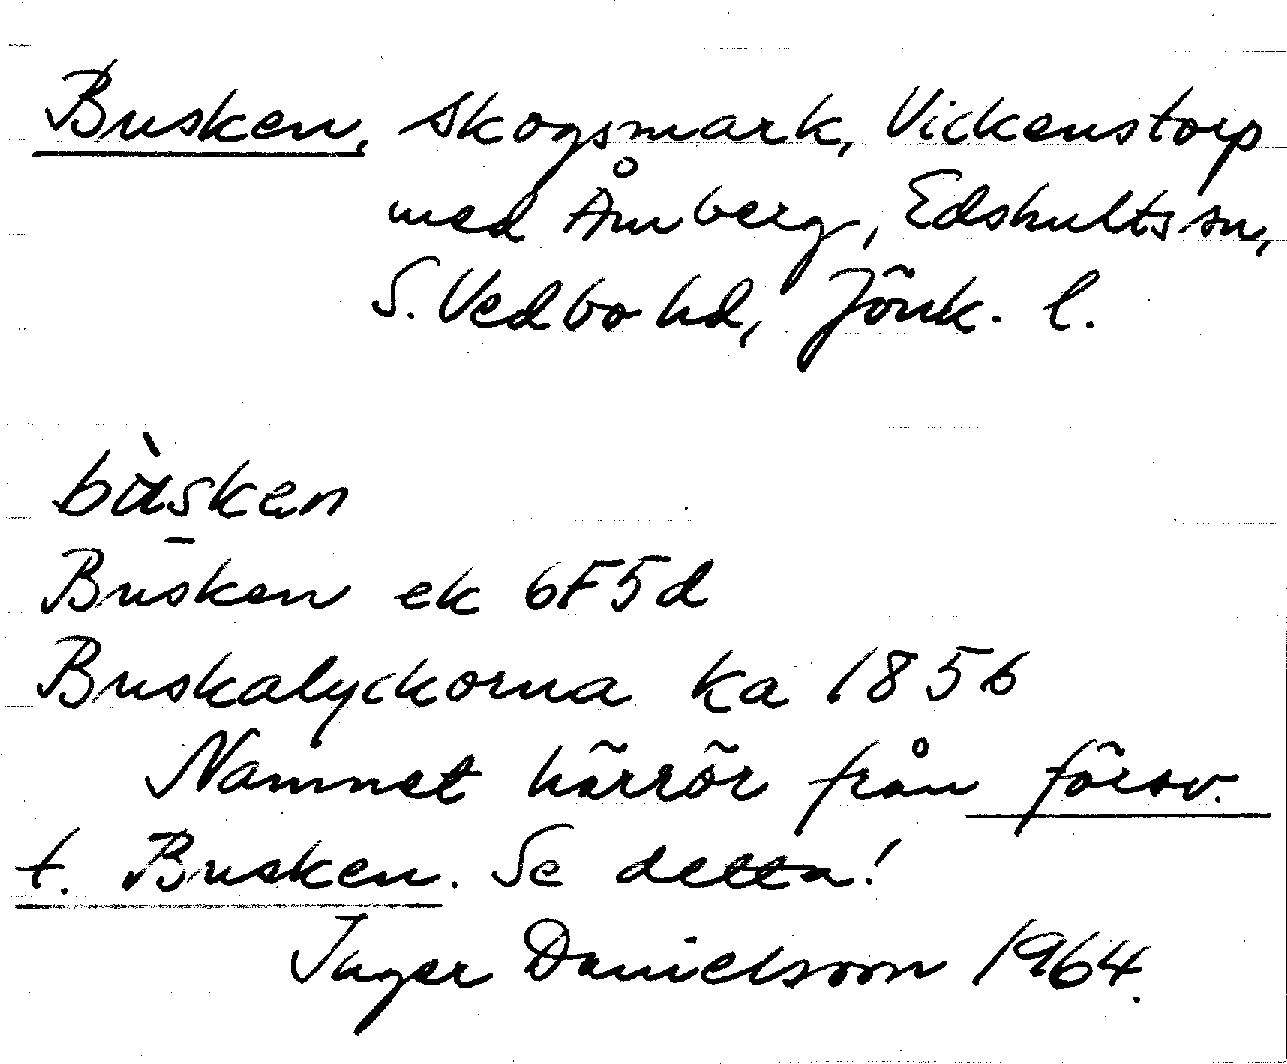 Busken, skogsmark, Vickenstorp
med Åmberg, Edshults sn,
S. Vedbo hd, Jönk. l.
bùsken
Busken ek 6F5d
Buskalyckorna ka 1856
Namnet härrör från försv.
t. Busken. Se detta!
Inger Danielsson 1964.